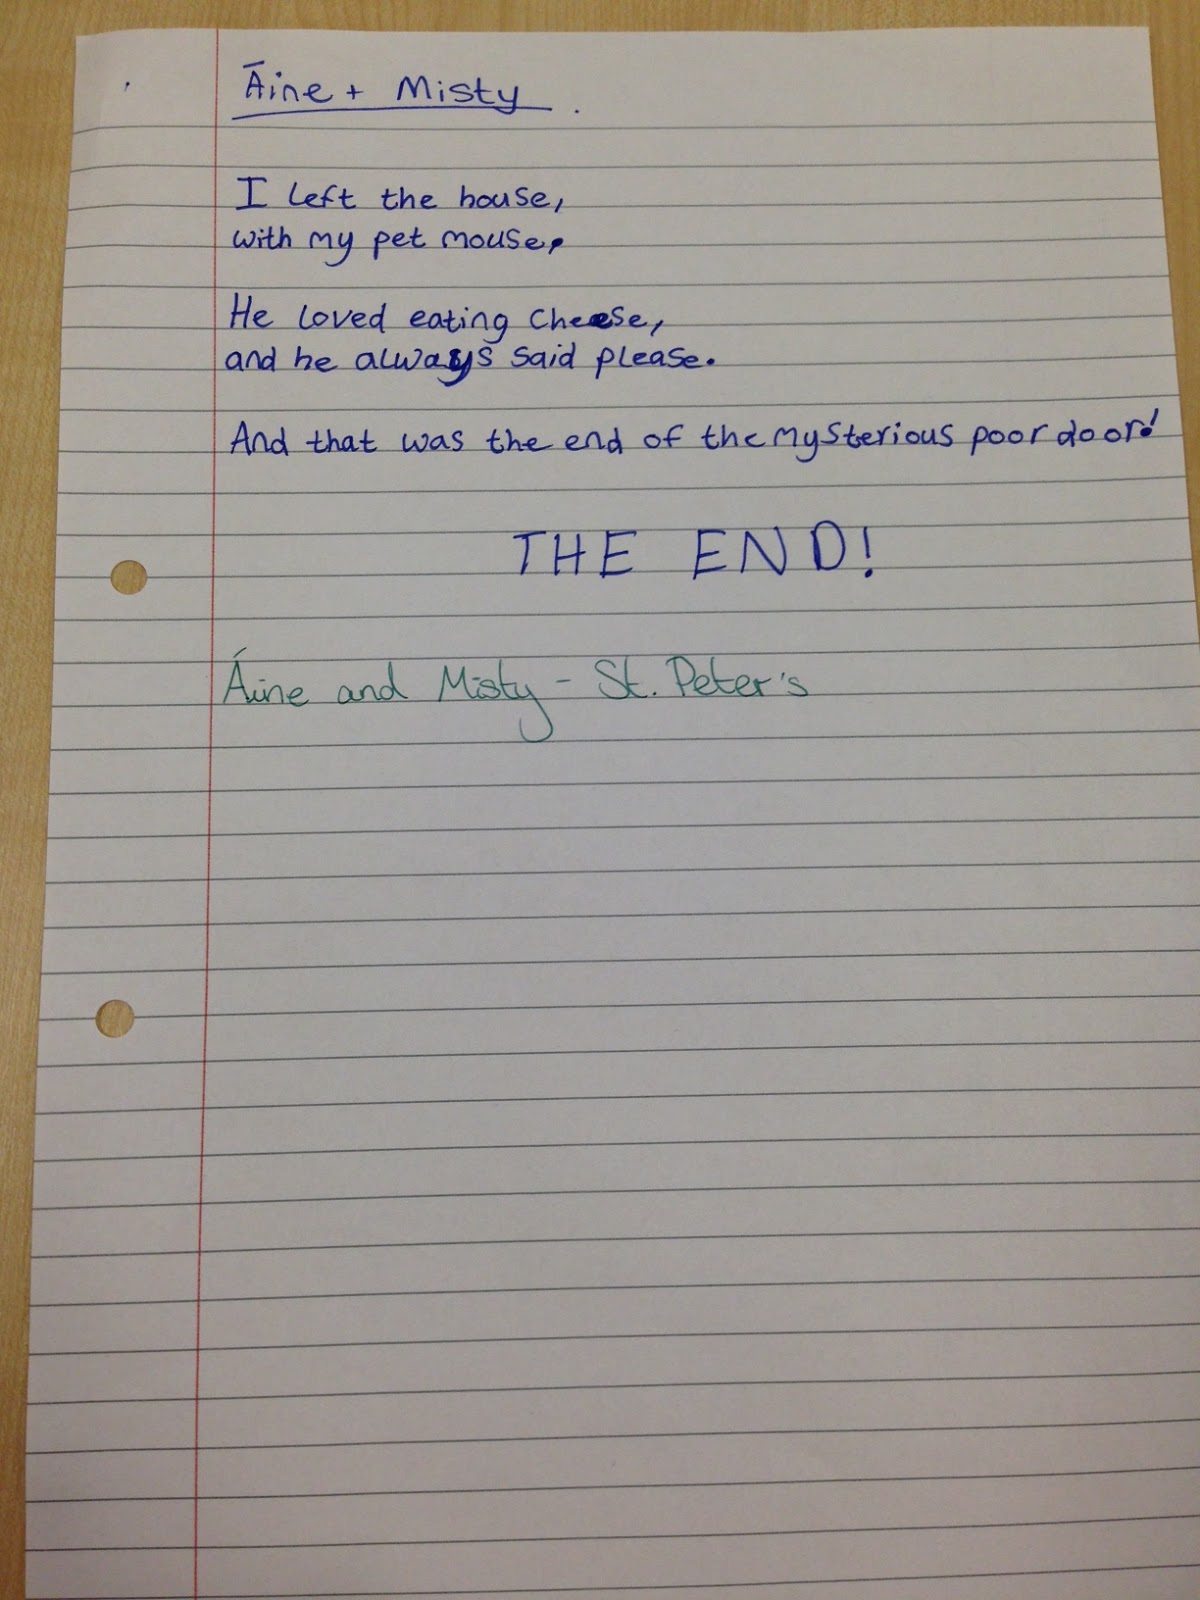 Áine + Misty
I left the house,
with my pet mouse.
He loved eating cheese,
and he always said please.
And that was the end of the mysterious poor door!
THE END!
Áine and Misty - St. Peter's